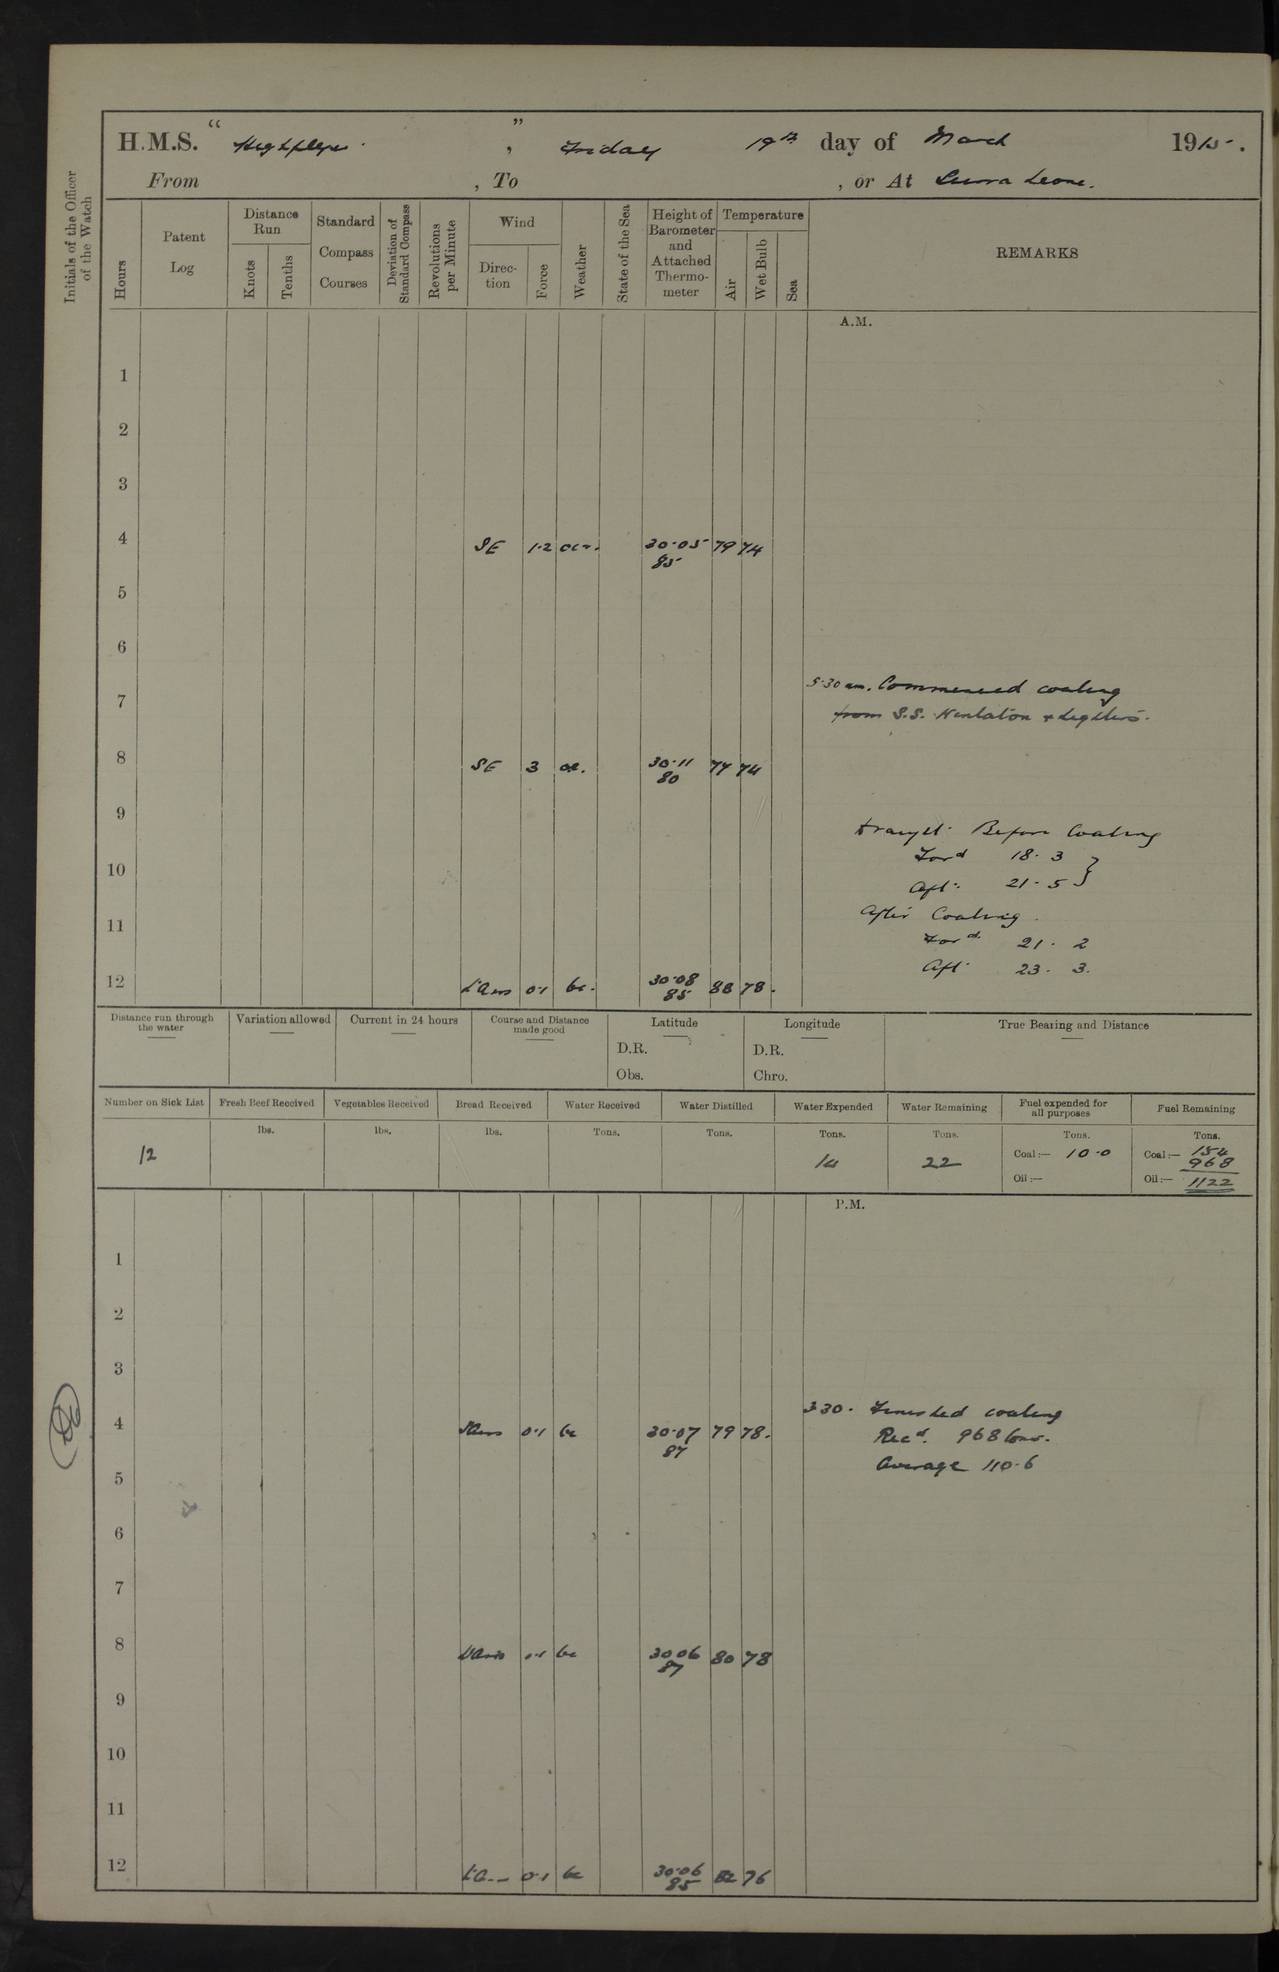 H.M.S. " Highflyer " , Friday 19th day of March 1915.
From , To , or At Sierra Leone.
Initials of the Officer of the Watch
Hours
Patent Log
Distance Run
Knots
Tenths
Standard Compass Courses
Deviation of Standard Compass
Revolutions per Minute
Wind
Direction
Force
Weather
State of the Sea
Height of Barometer and Attached Thermometer
Temperature
Air
Wet Bulb
Sea
REMARKS
A.M.
1
2
3
4 SE 1·2 30·05 79 74
85
5
6
5·30 am. Commenced coaling
7
from S.S. & Lighters.
8 SE 3 oc. 30·11 77 74
80
9
Draught Before Coaling
Ford 18· 3
10
Aft: 21· 5
After Coaling
11
Ford 21· 2
Aft 23· 3.
12 0·1 bc. 30·08 88 78.
85
Distance run through the water
Variation allowed
Current in 24 hours
Course and Distance made good
Latitude
D.R.
Obs.
Longitude
D.R.
Chro.
True Bearing and Distance
Number on Sick List
Fresh Beef Received
Vegetables Received
Bread Received
Water Received
Water Distilled
Water Expended
Water Remaining
Fuel expended for all purposes
Fuel Remaining
lbs. lbs. lbs. Tons. Tons. Tons. Tons. Tons. Tons.
12 14 22 Coal:— 10·0 Coal:— 154
968
Oil:— Oil:— 1122
P.M.
1
2
3
3 30. Finished coaling
4 0·1 bc 30·07 79 78.
87
Recd. 968 tons.
Average 110·6
5
6
7
8 0·1 bc 30 06 80 78
87
9
10
11
12 0·1 bc 30·06 82 76
85